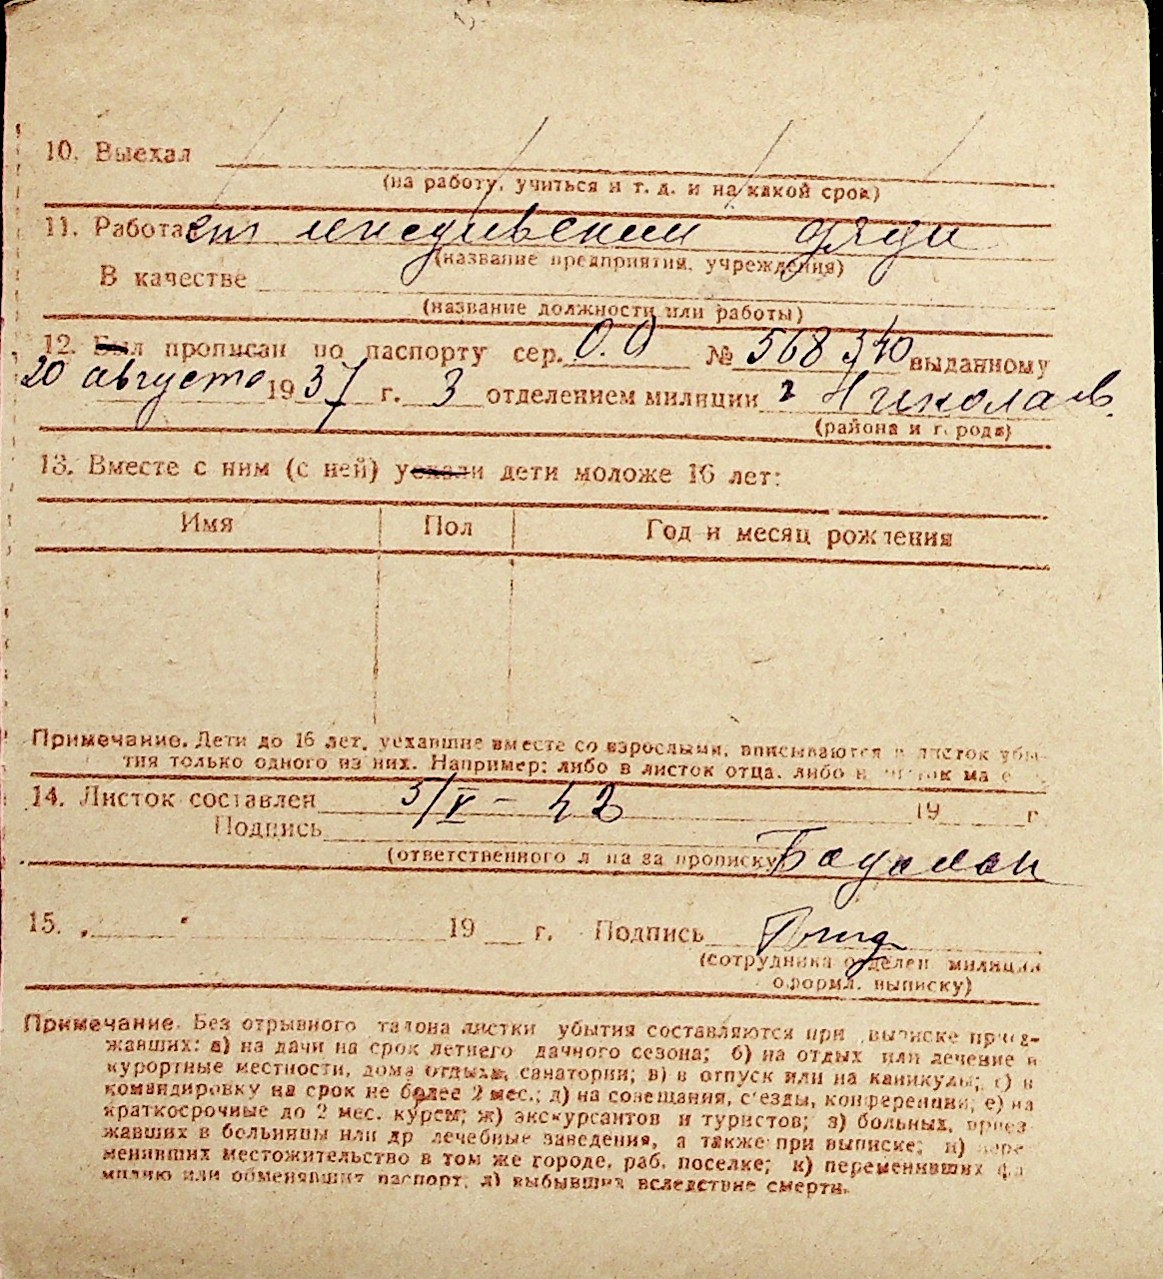 10. Выехал
(на работу, учиться и т. д. и на какой срок)
11. Работа
(название предприятия, учреждения)
В качестве
(название должности или работы)
12. Был прописан по паспорту сер. О.О № 568340 выданному
20 августа 1937 г. 3 отделением милиции г Николаев.
(района и города)
13. Вместе с ним (с ней) уехали дети моложе 16 лет:
Имя Пол Год и месяц рождения
Примечание. Дети до 16 лет, уехавшие вместе со взрослыми, вписываются в листок убы-
тия только одного из них. Например: либо в листок отца, либо в листок ма
14. Листок составлен 5/V - 42 19 г
Подпись
(ответственного л на за прописку) Бадалан
15. 19 г. Подпись
(сотрудника отделен милиции
оформл. выписку)
Примечание. Без отрывного талона листки убытия составляются при выписке приез-
жавших: а) на дачи на срок летнего дачного сезона; б) на отдых или лечение в
курортные местности, дома отдыха, санатории; в) в отпуск или на каникулы; г) в
командировку на срок не более 2 мес.; д) на совещания, с'езды, конференции; е) на
краткосрочные до 2 мес. курсы; ж) экскурсантов и туристов; з) больных, приез-
жавших в больницы или др лечебные заведения, а также при выписке; и) пере-
менивших местожительство в том же городе, раб. поселке; к) переменивших фа
милию или обменявших паспорт; л) выбывших вследствие смерти.